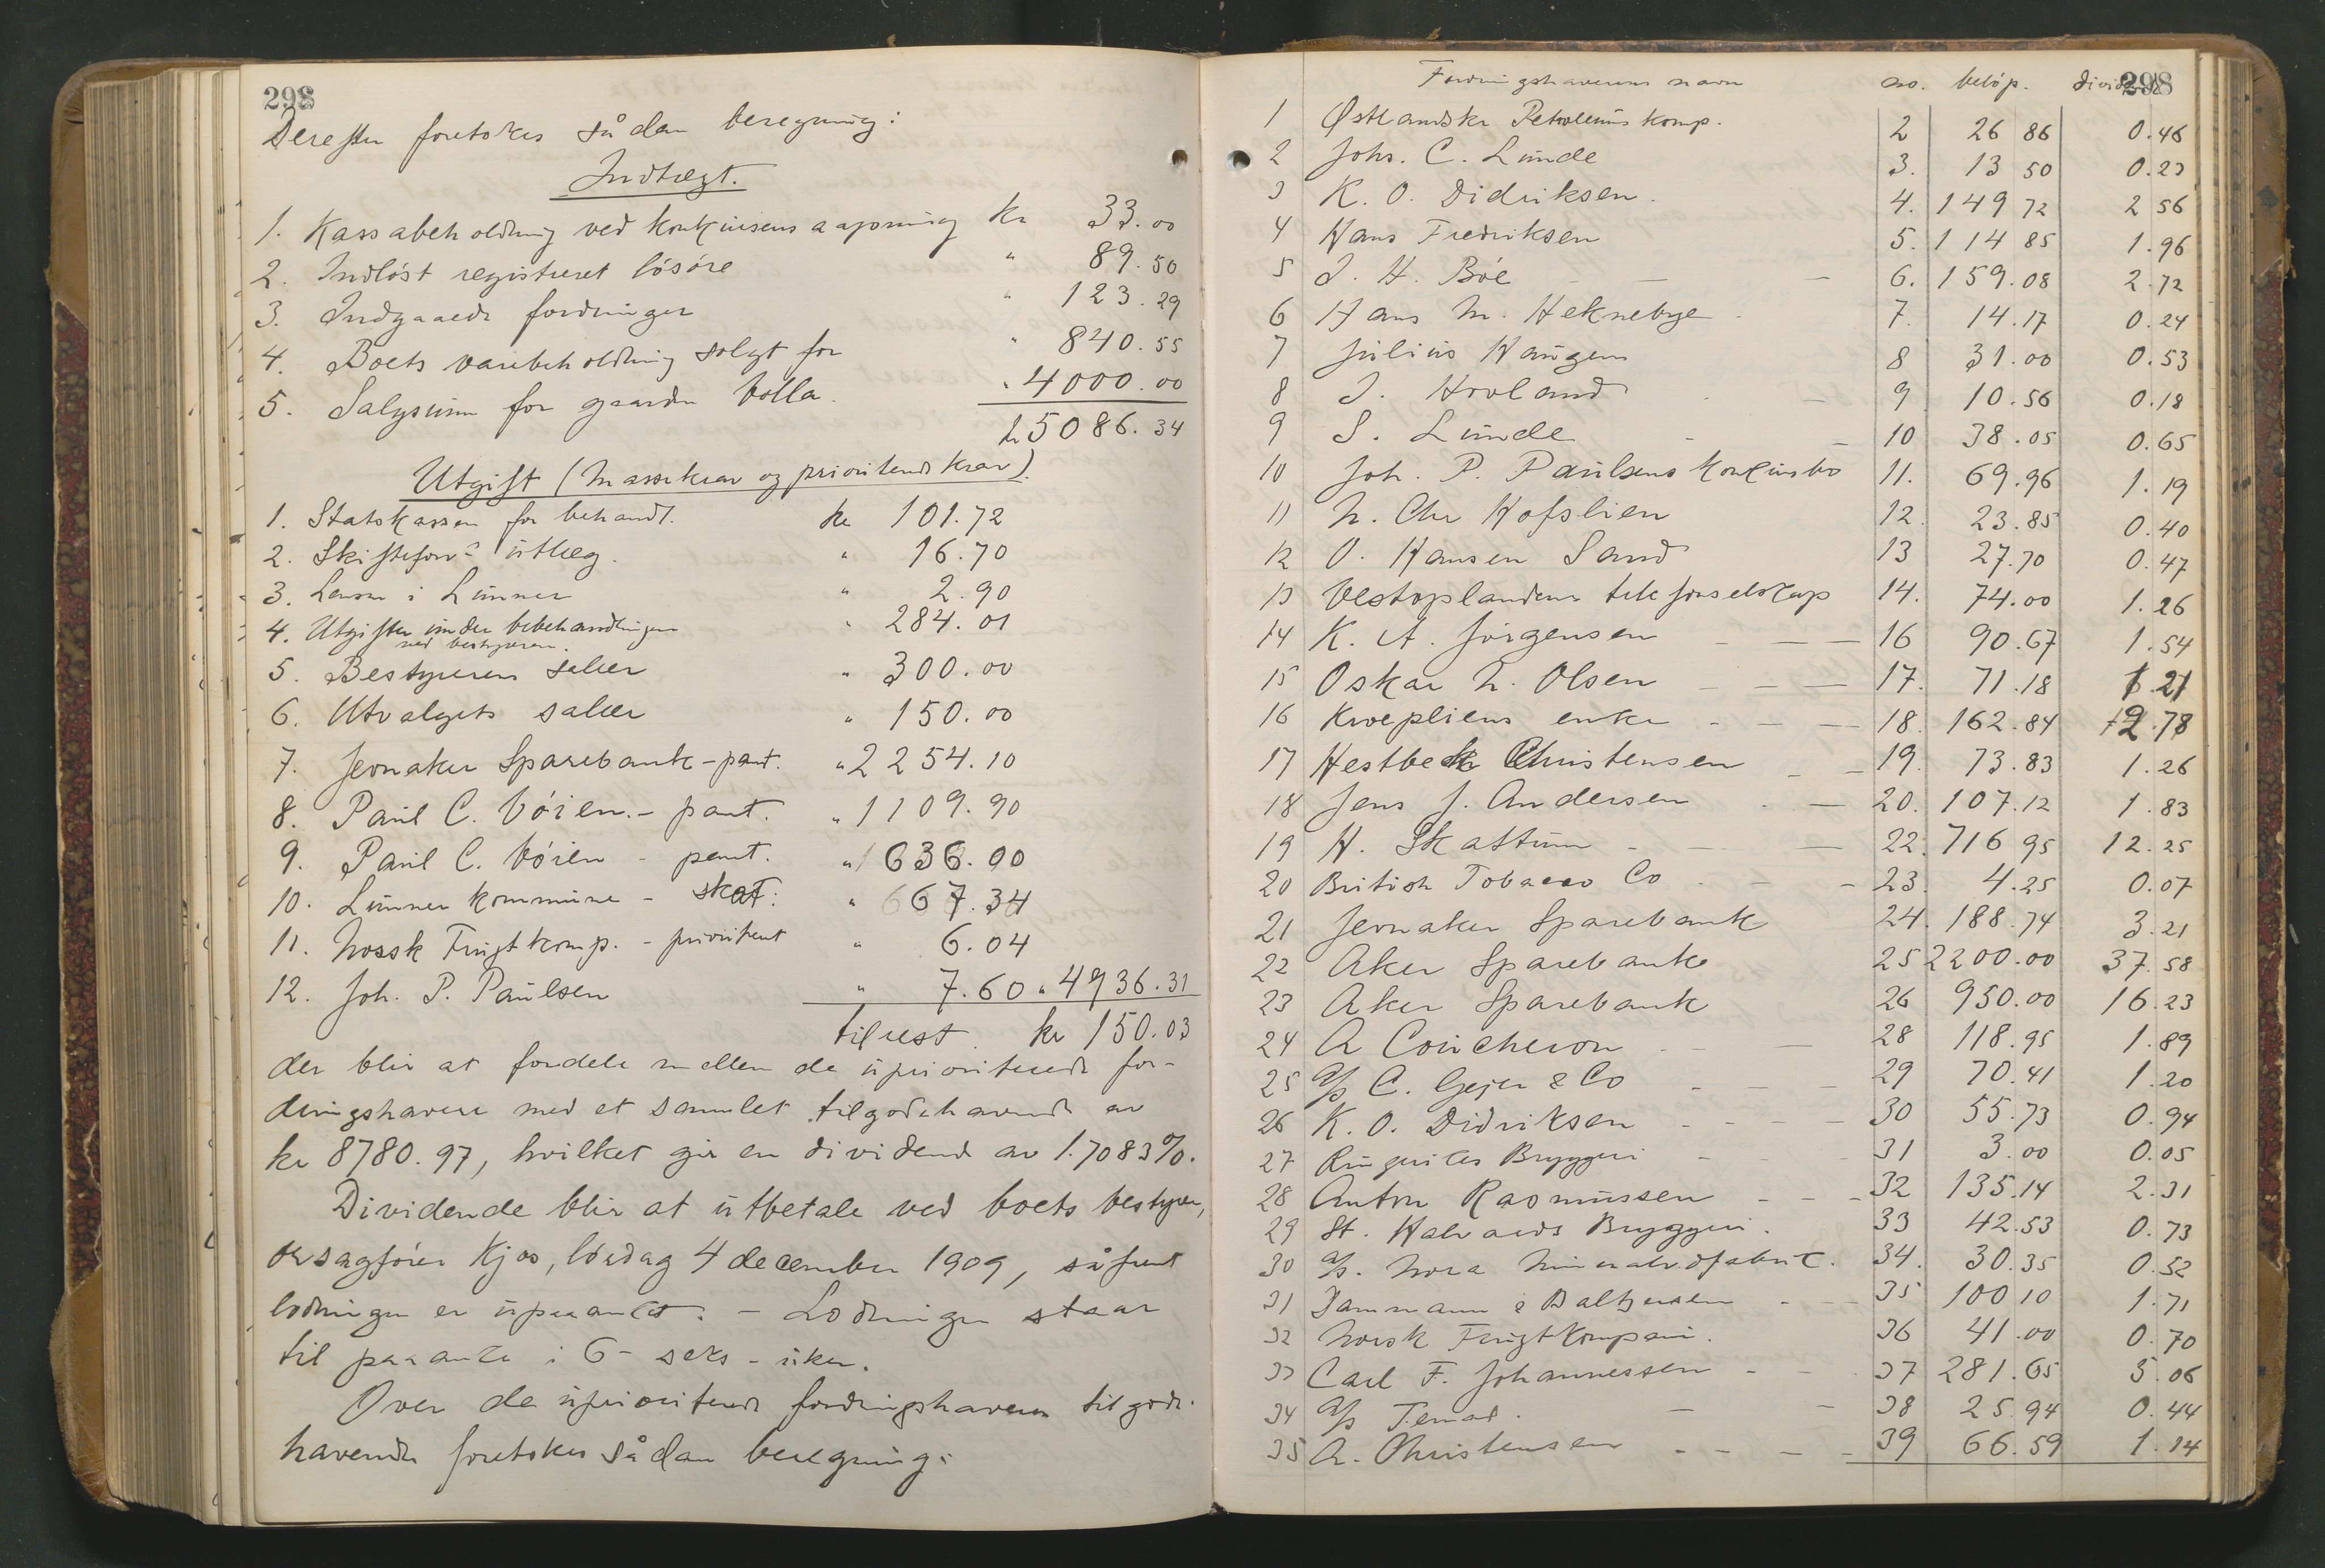 298
Derefter foretokes sådan beregning:
Indtægt.
1. Kassabeholdning ved konkursens aapning kr 33.00
2. Indløst registreret løsøre " 89.50
3. Indgaaede fordringer " 123.29
4. Boets varebeholdning solgt for " 840.55
5. Salgssum for gaarden Volla " 4000.00
kr 5086.34
Utgift (Massekrav og prioriterede krav).
1. Statskassen for behandl. kr 101.72
2. Skifteforv. utlæg. " 16.70
3. Lensm i Lunner " 2.90
4. Utgifter under bobehandlingen " 284.01
ved bestyreren.
5. Bestyrerens salær " 300.00
6. Utvalgets salær " 150.00
7. Jevnaker Sparebank - pant. " 2254.10
8. Paul C. Vøien. - pant. " 1109.90
9. Paul C. Vøien - pant. " 636.00
10. Lunner kommune - skat: " 67.34
11. Norsk Frugtkomp. - prioritert " 6.04
12. Joh. P. Paulsen " 7.60 " 4936.31
til rest. kr 150.03
der blir at fordele mellem de uprioriterede for-
dringshavere med et samlet tilgodehavende av
kr 8780.97, hvilket gir en dividende av 1.7083%.
Dividende blir at utbetale ved boets bestyrer,
o.r.sagfører Kjos, lørdag 4 december 1909, såfremt
lodningen er upaaanket. - Lodningen staar
til paaanke i 6 - seks - uker.
Over de uprioriterede fordringshaveres tilgode-
havende foretokes sådan beregning:
298
Fordringshaverens navn no. beløp. dividende
1 Østlandske Petroleums komp. 2 26 86 0.46
2 Johs. C. Lunde 3. 13 50 0.23
3 K. O. Didriksen. 4. 149 72 2 56
4 Hans Fredriksen 5. 114 85 1.96
5 J. H. Bøe 6. 159.08 2.72
6 Hans M. Heknebye 7. 14.17 0.24
7 Julius Haugen 8 31.00 0.53
8 J. Hovland 9 10.56 0.18
9 S. Lunde 10 38.05 0.65
10 Joh. P. Paulsens konkursbo 11. 69.96 1.19
11 N. Chr Hofslien 12. 23.85 0.40
12 O. Hansen Sand 13 27.70 0.47
13 Vestoplandenes telefonselskap 14. 74.00 1.26
14 K. A. Jørgensen 16 90.67 1.54
15 Oskar N. Olsen 17. 71.18 1.21
16 Kroepliens enke 18. 162.84 2.78
17 Hestbek Christensen 19. 73.83 1.26
18 Jens J. Andersen 20. 107.12 1.83
19 H. Skattum 22. 716 95 12.25
20 British Tobacco Co 23. 4.25 0.07
21 Jevnaker Sparebank 24. 188.74 3.21
22 Aker Sparebank 25 2200.00 37.58
23 Aker Sparebank 26 950.00 16.23
24 A Coucheron 28 118.95 1.89
25 A/s C. Geijer & Co 29 70.41 1.20
26 K. O. Didriksen 30 55.73 0.94
27 Ringerikes Bryggeri 31 3.00 0.05
28 Anton Rasmussen 32 135.14 2.31
29 St. Halvards Bryggeri. 33 42.53 0.73
30 A/s. Nora Mineralv.fabrik. 34. 30.35 0.52
31 Dammann & Baltzersen 35 100 10 1.71
32 Norsk Frugtkompani. 36 41.00 0.70
33 Carl F. Johannessen 37 281.65 5.06
34 A/s 38 25.94 0.44
35 A. Christensen 39 66.59 1.14